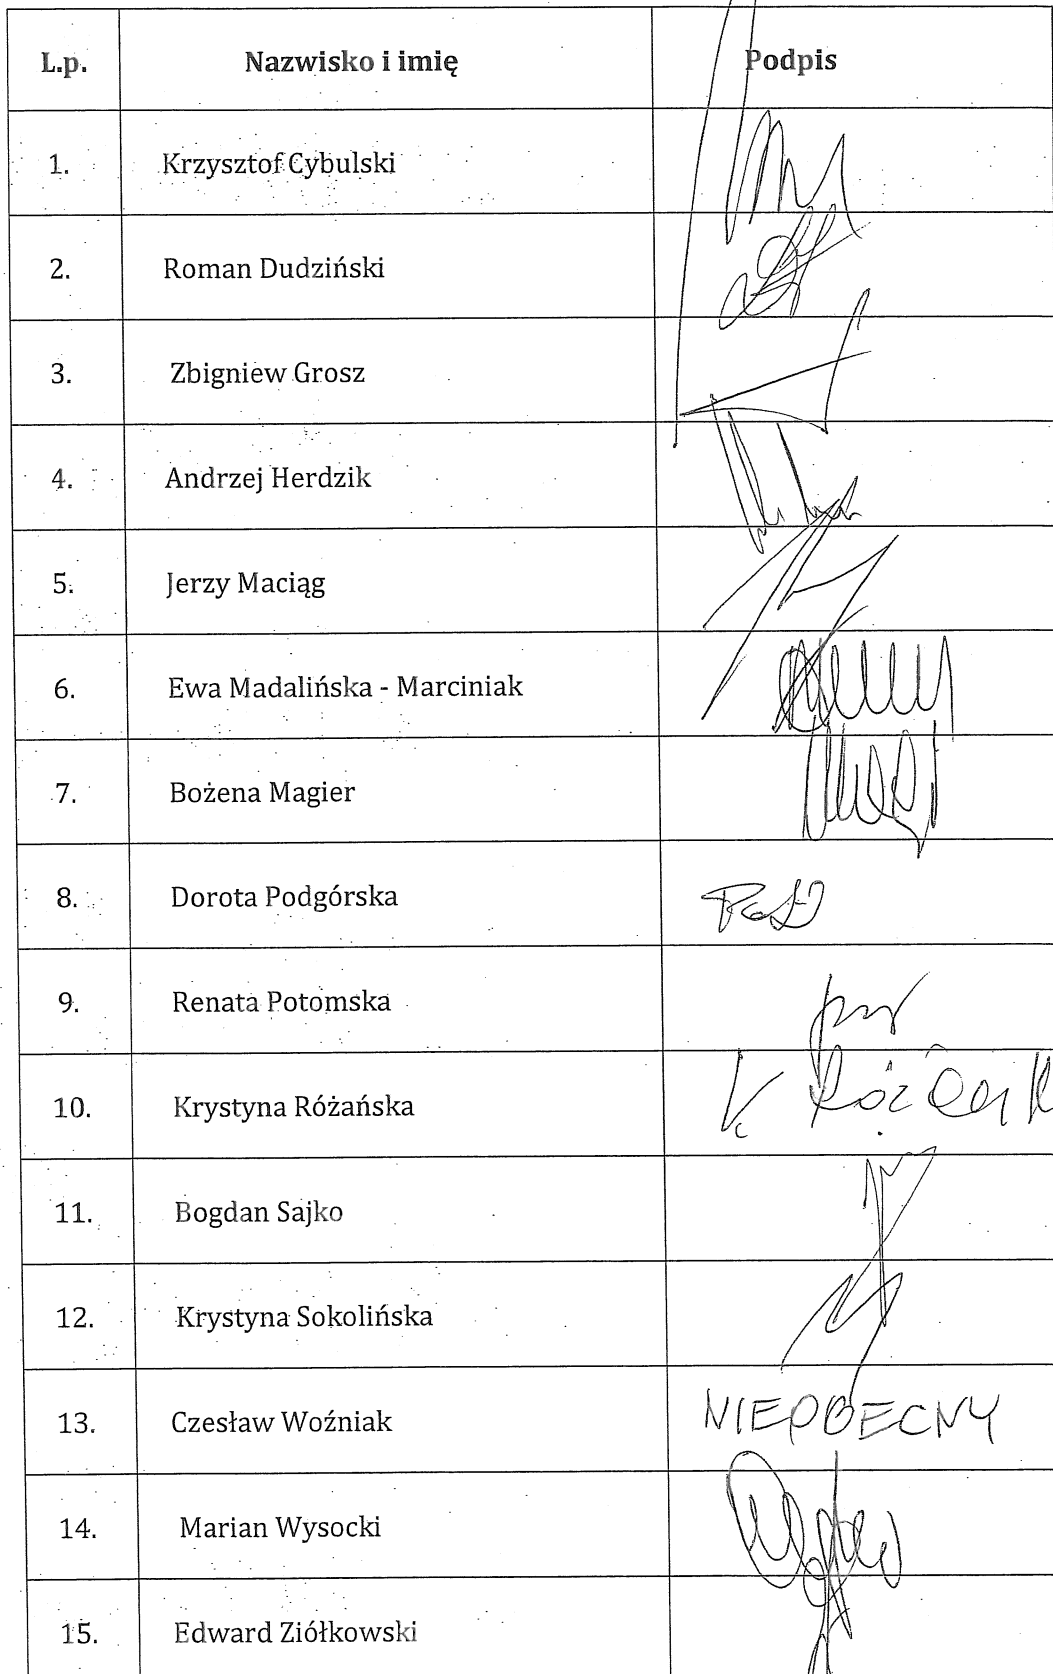 L.p. Nazwisko i imię Podpis
1. Krzysztof Cybulski
2. Roman Dudziński
3. Zbigniew Grosz
4. Andrzej Herdzik
5. Jerzy Maciąg
6. Ewa Madalińska - Marciniak
7. Bożena Magier
8. Dorota Podgórska
9. Renata Potomska
10. Krystyna Różańska K.
11. Bogdan Sajko
12. Krystyna Sokolińska
13. Czesław Woźniak NIEOBECNY
14. Marian Wysocki
15. Edward Ziółkowski